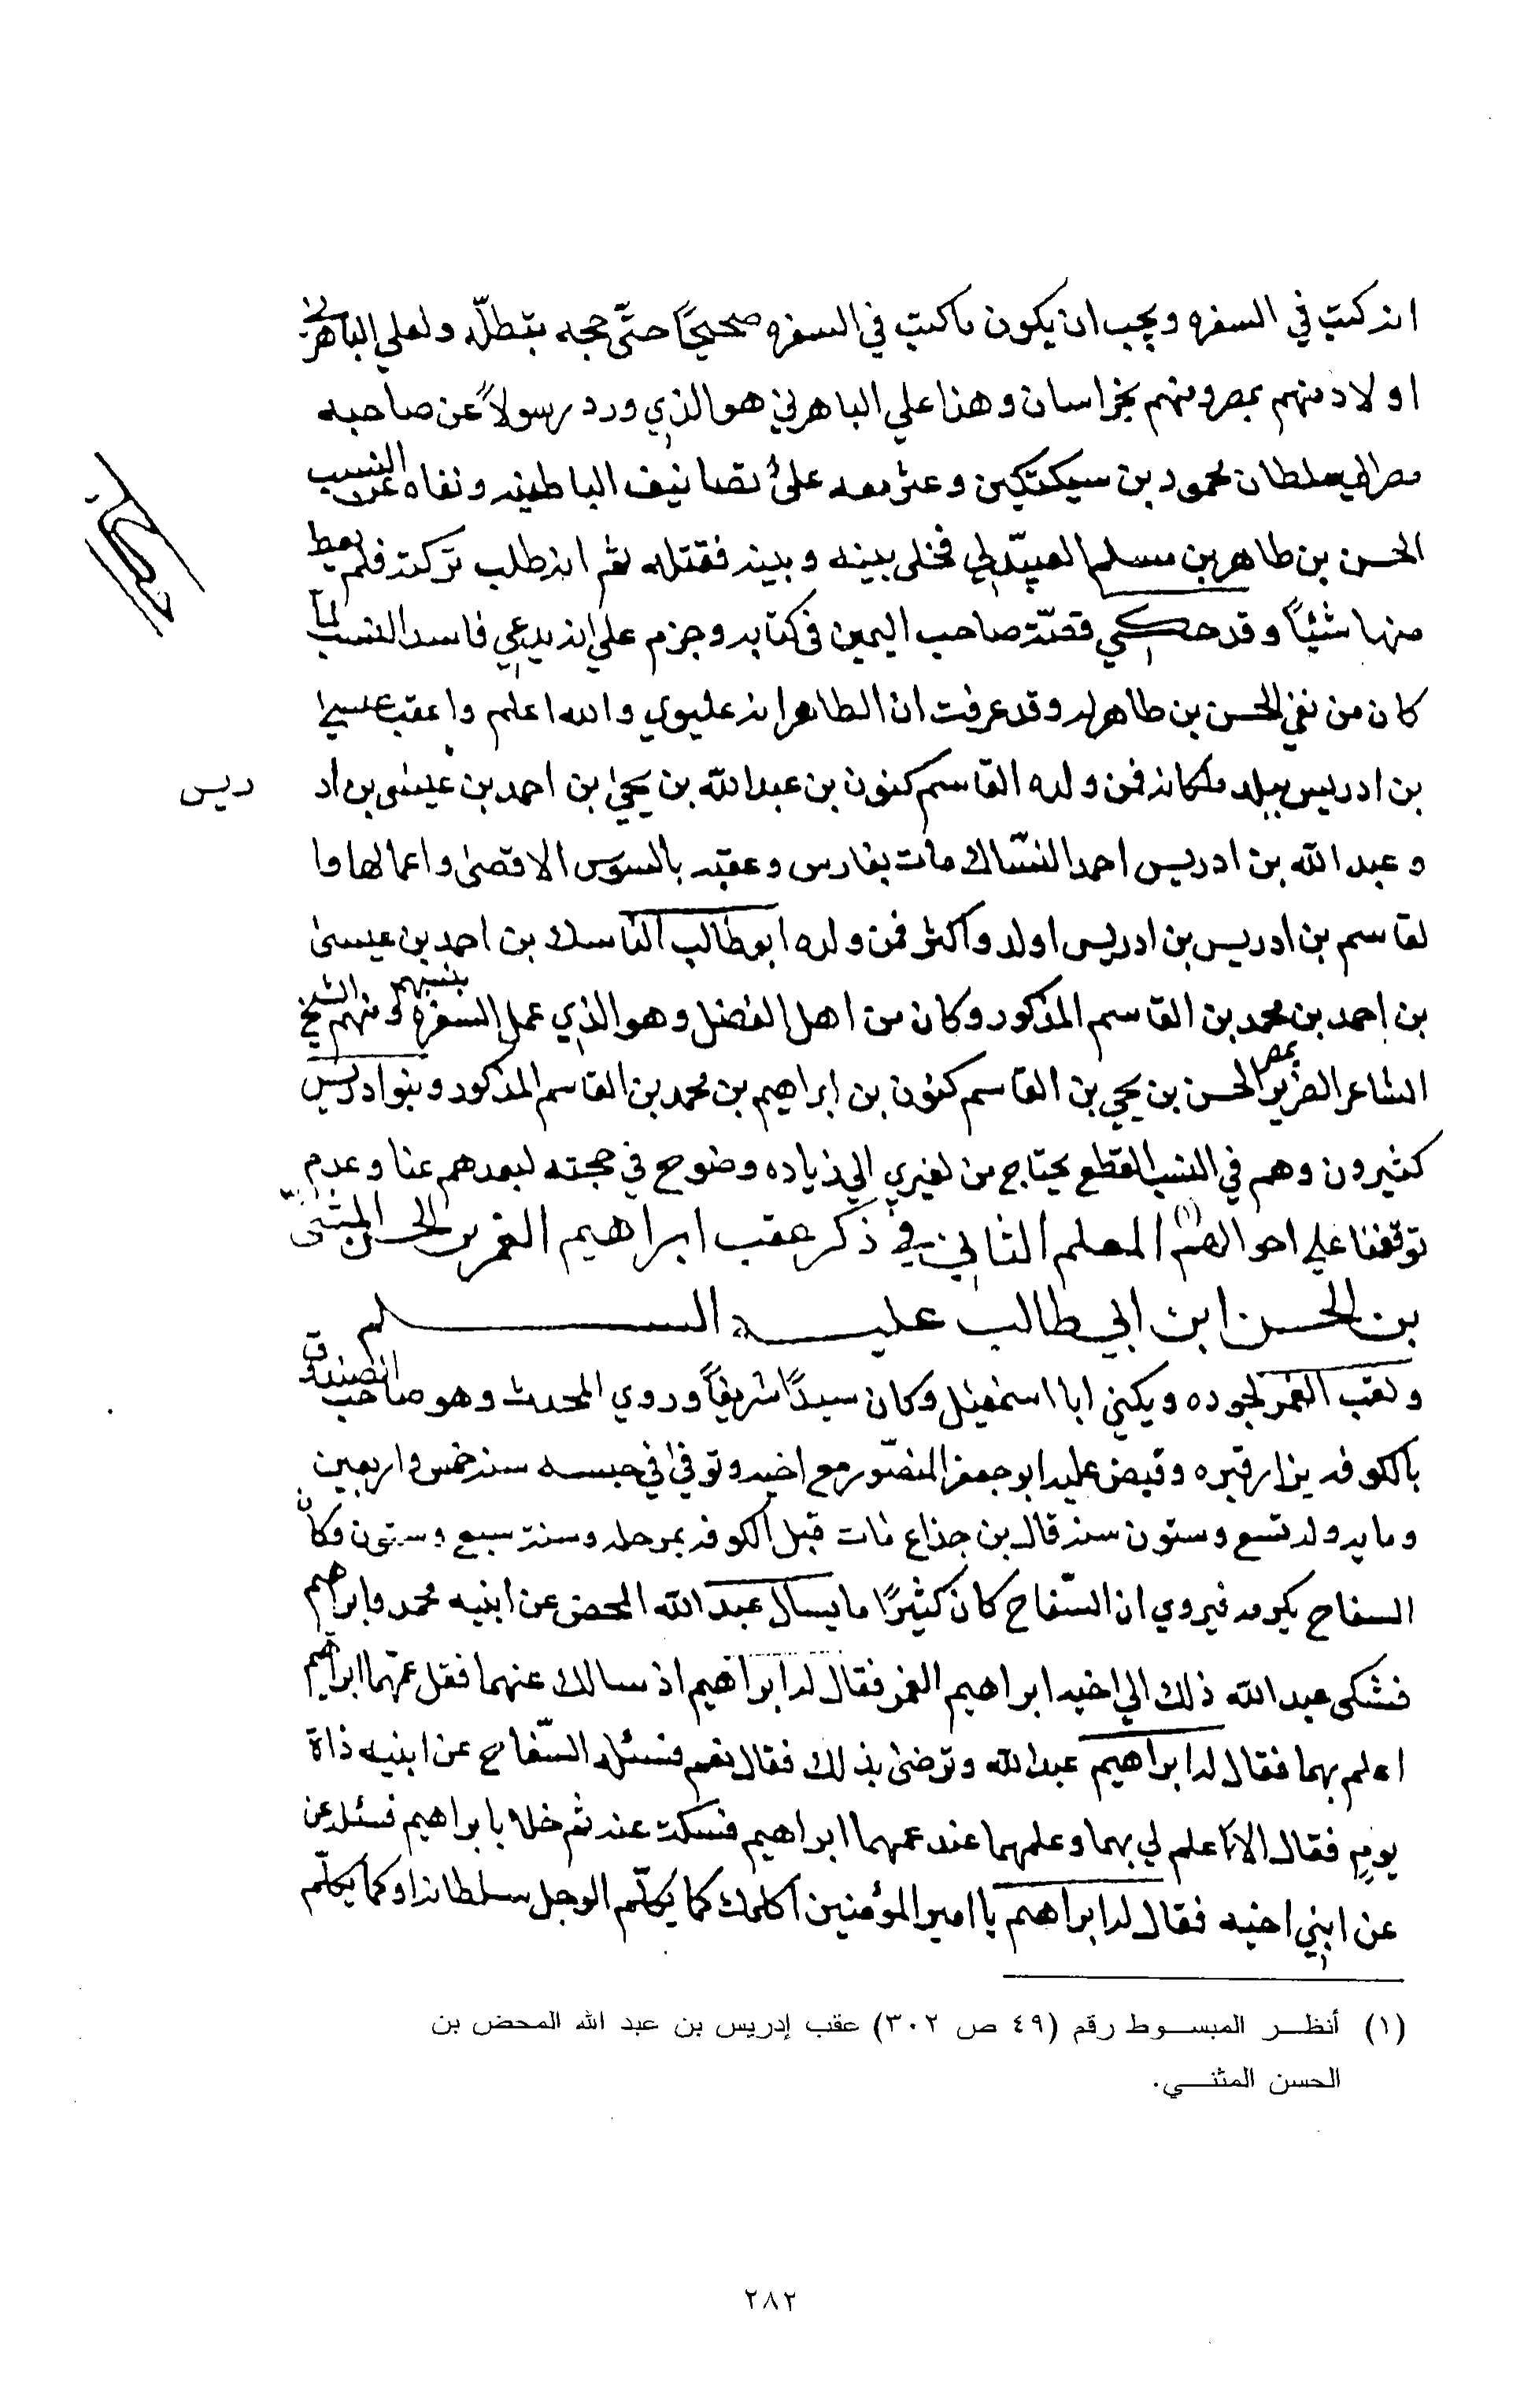 انه كتب في السفره ويجب ان يكون ما كتب في السفره صحيحًا حتّى حجه بتبطلّه ولعلي الباهرني
اولاد منهم بمصر ومنهم بخراسان وهذا علي الباهرني هو الذي ورد رسولاً عن صاحبه
مصر الي سلطان محمود بن سبكتكين وعثر معه على تصانيف الباطنيه ونفاه عن النسب
الحسن بن طاهر بن مسلم العبيدلي فخلى بينه وبينه فقتله ثم انه طلب تركته فلم يعط
منها شئيًا وقد حكي قصّته صاحب اليمين في كتابه وجزم علي انه يدعي فاسد النسب لما
كان من نفي الحسن بن طاهر له وقد عرفت ان الظاهر انه عليوي والله اعلم واعقب عيسي
بن ادريس ببلد ملكانه فمن ولده القاسم كنون بن عبد الله بن يحيى بن احمد بن عيسى بن اد ريس
وعبد الله بن ادريس احمد النسّاك مات بفارس وعقبه بالسوس الاقصى واعمالها وا
لقاسم بن ادريس بن ادريس اولد واكثر فمن ولده ابو طالب الناسك بن احمد بن عيسى
بن احمد بن محمد بن القاسم المذكور وكان من اهل الفضل وهو الذي عمل السفره بنسبهم ومنهم الشيخ
الشاعر الضرير بمصر الحسن بن يحيي بن القاسم كنون بن ابراهيم بن محمد بن القاسم المذكور وبنوا دريس
كثيرون وهم في النسب القطع يحتاج من لغيري الي زياده وضوح في حجته لبعدهم عنا وعدم
توقفنا علي احوالهم (١) المعلم الثاني في ذكر عقب ابراهيم الغمر بن الحسن المثنىّ
بن الحسن ابن ابي طالب عليه السلم
ولقب الغمر لجوده ويكني ابا اسمعيل وكان سيدًا شريفًا وروي المحدث وهو صاحب الصندوق
بالكوفه يزار قبره وقبض عليه ابو جعفر المنصّور مع اخيه وتوفي في حبسه سنة خمس واربعين
وما يه وله تسع وستون سنه قال بن جذاع مات قبل الكوفه بمرحله وسنة سبع وستون وكان
السفاح يكرمه فيروي ان السّفاح كان كثيرًا ما يسال عبد الله المحض عن ابنيه محمد وابراهيم
فشكى عبد الله ذلك الي اخيه ابراهيم الغمر فقال له ابراهيم اذ سالك عنهما فقل عمّهما ابراهيم
اعلم بهما فقال له ابراهيم عبد الله وترضى بذلك فقال نعم فسئله السّفاح عن ابنيه ذاة
يوم فقال الا نا علم لي بهما وعلمهما عند عمهما ابراهيم فسكت عنه ثم خلا بابراهيم فسئله عن
عن ابني اخيه فقال له ابراهيم يا امير المؤمنين اكلمك كما يكلّم الوجل سلطانه اوكما يكلّم
(١) أنظر المبسوط رقم (٤٩ ص ٣٠٢) عقب إدريس بن عبد الله المحض بن
الحسن المثنى.
٢٨٢